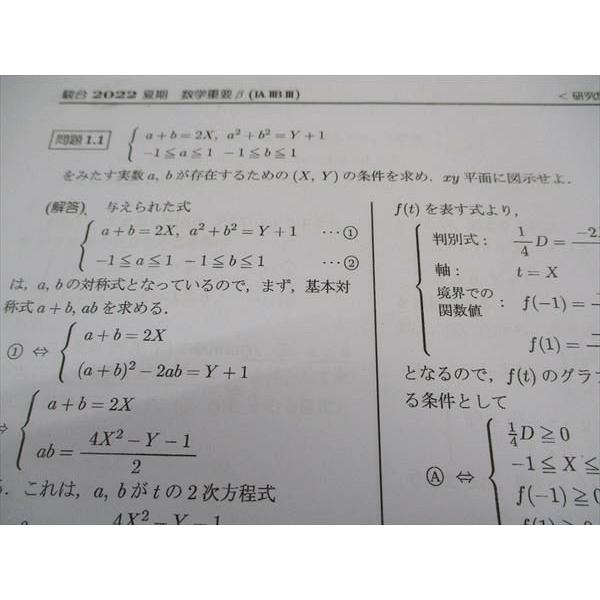 駿台 2022 夏期 数学重要β(IA ⅡB Ⅲ)
<研究
問題 1.1
a + b = 2X, a² + b² = Y + 1
−1 ≦ a ≦ 1 −1 ≦ b ≦ 1
をみたす実数 a, b が存在するための (X, Y) の条件を求め, xy 平面に図示せよ.
(解答) 与えられた式
a + b = 2X, a² + b² = Y + 1 …①
−1 ≦ a ≦ 1 −1 ≦ b ≦ 1 …②
は, a, b の対称式となっているので, まず, 基本対
称式 a + b, ab を求める.
① ⇔ { a + b = 2X
(a + b)² − 2ab = Y + 1
⇔ { a + b = 2X
ab = (4X² − Y − 1)/2
. これは, a, b が t の 2 次方程式
4X² − Y − 1
f(t) を表す式より,
判別式 : 1/4 D = −2
軸 : t = X
境界での
関数値 : f(−1) =
f(1) =
となるので, f(t) のグラ
る条件として
Ⓐ ⇔ { 1/4 D ≧ 0
−1 ≦ X ≦
f(−1) ≧ 0
f(1) ≧ 0